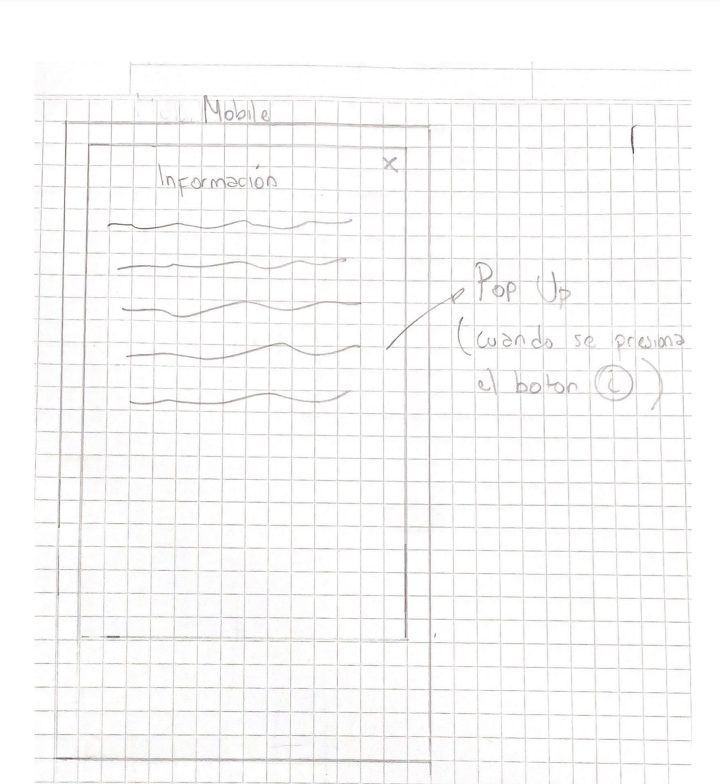 Mobile
Información
x
Pop Up
(cuando se presiona
el boton i)